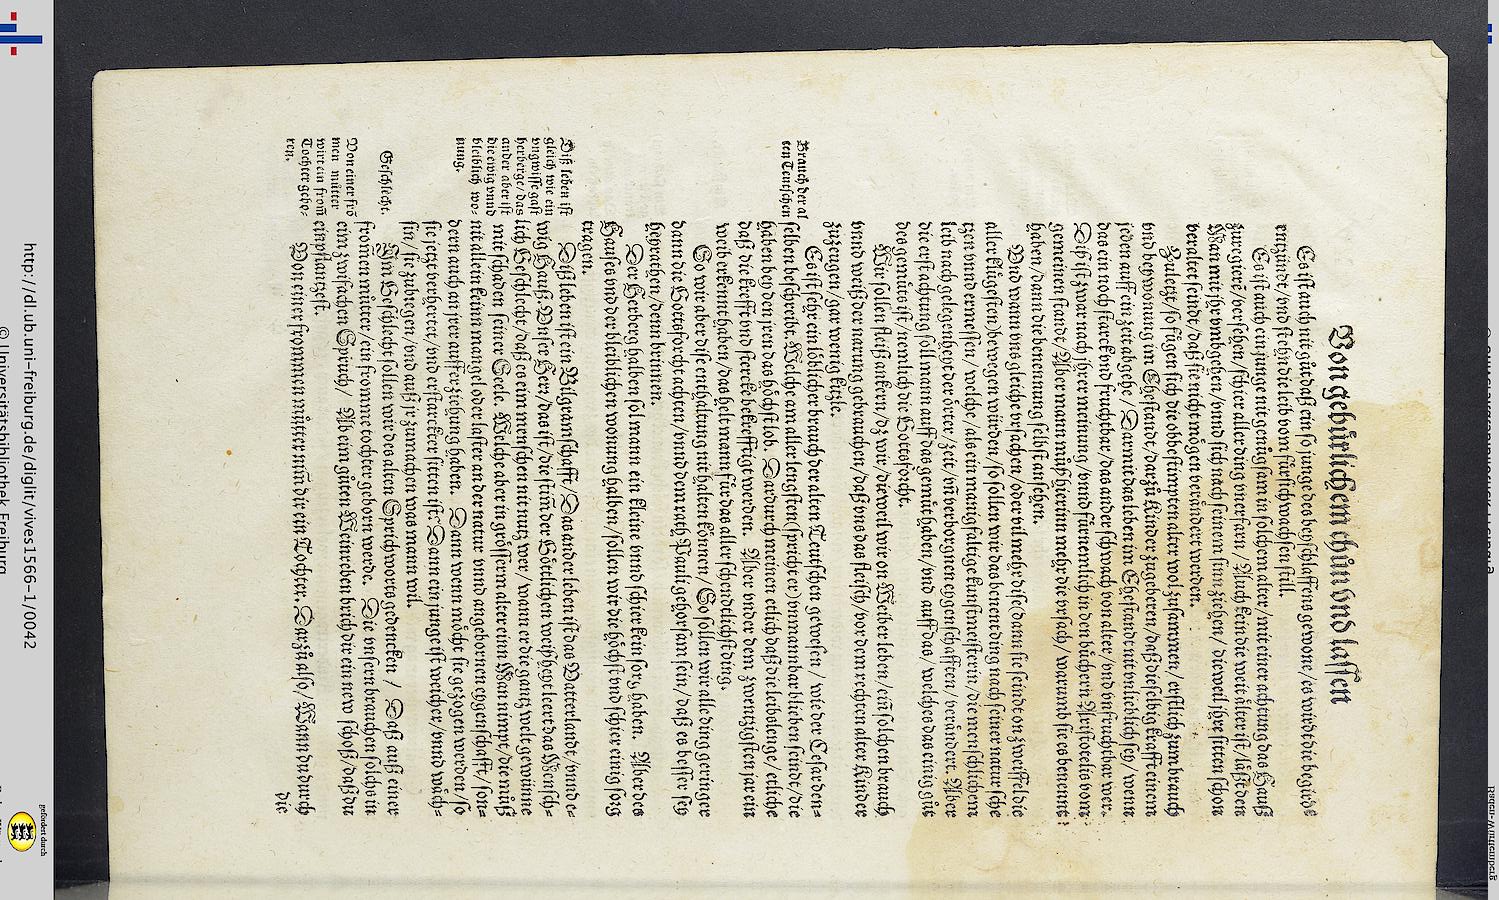 Von gebürlichem thůn vnd lassen
Es ist auch nit gůt daß ein so junge des beyschlaffens gewone / es wirdt die begirde
entzündt / vnd steht die leib vom fürsich wachsen still.
Es ist auch ein junge nit genůgsam in solchem alter / mit einer achtung das Hauß
zu regiern / versehen / schier aller ding vnerfarn / Auch kein die weil älter ist / läßt den
Man mit jhr vmbgehen / vnnd sich nach seinem sinn ziehen / dieweil jhre sitten schon
veraltet seindt / daß sie nicht mögen verändert werden.
Zuletzt / so fůgen sich die obbestimpten alter wol zusammen / erstlich zum brauch
vnd beywonung im Ehestandt / darzů Kinder zugeberen / daß dieselbig krafft einem
jeden auff ein zeit abgehe / Darmit das leben im Ehestandt nit vnlieblich sey / wenn
das ein noch starck vnd fruchtbar / das ander schwach von alter / vnd vnfruchtbar wer.
Diß ist zwar nach jhrer meinung / vnnd fürnemlich in den büchern Aristotelis vom
gemeinen standt / Aber mann můß hierinn mehr die vrsach / warumb sie es benennt
haben / dann die benennung selbst ansehen.
Vnd wann vns gleiche vrsachen / oder vil mehr dise (dann sie seindt on zweiffel die
aller klůgesten) bewegen würden / so sollen wir das benent ding nach seiner natur sche
tzen vnnd ermessen / welche / als ein manigfaltige kunstmeisterin / die menschlichen
leib nach gelegenheyt der örter / zeit / vñ verborgnen eygenschafften / verändert. Aber
die erst achtung soll mann auff das gemüt haben / vnd auff das / welches das einig gůt
des gemüts ist / nemlich die Gottsforcht.
Wir sollen fleiß ankern / dz wir / dieweil wir on Weiber leben / eiñ solchen brauch
vnnd weiß der narung gebrauchen / daß vns das fleisch / vor dem rechten alter Kinder
zuzeugen / gar wenig kitzle.
Brauch der al
ten Teutschen
Es ist sehr ein löblicher brauch der alten Teutschen gewesen / wie der Cesar den-
selben beschreibt. Welche am aller lengsten (spricht er) vnmannbar blieben seindt / die
haben bey den jren das höchst lob. Dardurch meinen etlich daß die leibs lenge / etliche
daß die krefft vnd stercke bekrefftigt werden. Aber vnder dem zwentzigsten jar ein
weib erkennt haben / das helt mann für das aller schendtlichst ding.
So wir aber dise enthaltung nit halten können / So sollen wir alle ding geringer
dann die Gottsforcht achten / vnnd dem rath Pauli gehorsam sein / daß es besser sey
heyrathen / denn brinnen.
Der Herberg halben sol mann ein kleine vnnd schier kein sorg haben. Aber des
Hauses vnd der bleiblichen wonung halben / sollen wir die höchst vnd schier einig sorg
tragen.
Diß leben ist
gleich wie ein
vngwisse gast
herberge / das
ander aber ist
die ewig vnnd
bleiblich wo-
nung.
Diß leben ist ein Bilgramschafft / Das ander leben ist das Vatterlandt / vnnd e-
wig Hauß. Vnser Herr / das ist / die stimm der Göttlichen weißheyt leert das Mensch-
lich Geschlecht / daß es eim menschen nit nutz wer / wann er die gantz welt gewinne
mit schaden seiner Seele. Welche aber in grösserm alter einn Man nimpt / die můß
nit allein keinn mangel oder laster an der natur vnnd angebornen eygenschafft / son-
dern auch an jrer aufferziehung haben. Dann wenn möcht sie gezogen werden / so
sie jetzt verhertet / vnd erstarckter sitten ist: Dann ein junge ist weicher / vnnd wäch-
sin / sie zubiegen / vnd auß jr zumachen was mann wil.
Geschlecht.
Im Geschlecht sollen wir des alten Sprichworts gedencken / Daß auß einer
frommen můtter / ein fromme tochter geborn werde. Die vnsern brauchen solchs in
eim zwifachen Spruch / Ab eim gůten Weinreben brich dir ein new schoß / dz du
einpflantzest.
Von einer frõ
men můtter
wirt ein from̃
Tochter gebo-
ren.
Von einer frommen můtter nim̃ dir ein Tochter. Darzů also / Wann du durch
die
http://dl.ub.uni-freiburg.de/diglit/vives1566-1/0042
© Universitätsbibliothek Freiburg
gefördert durch